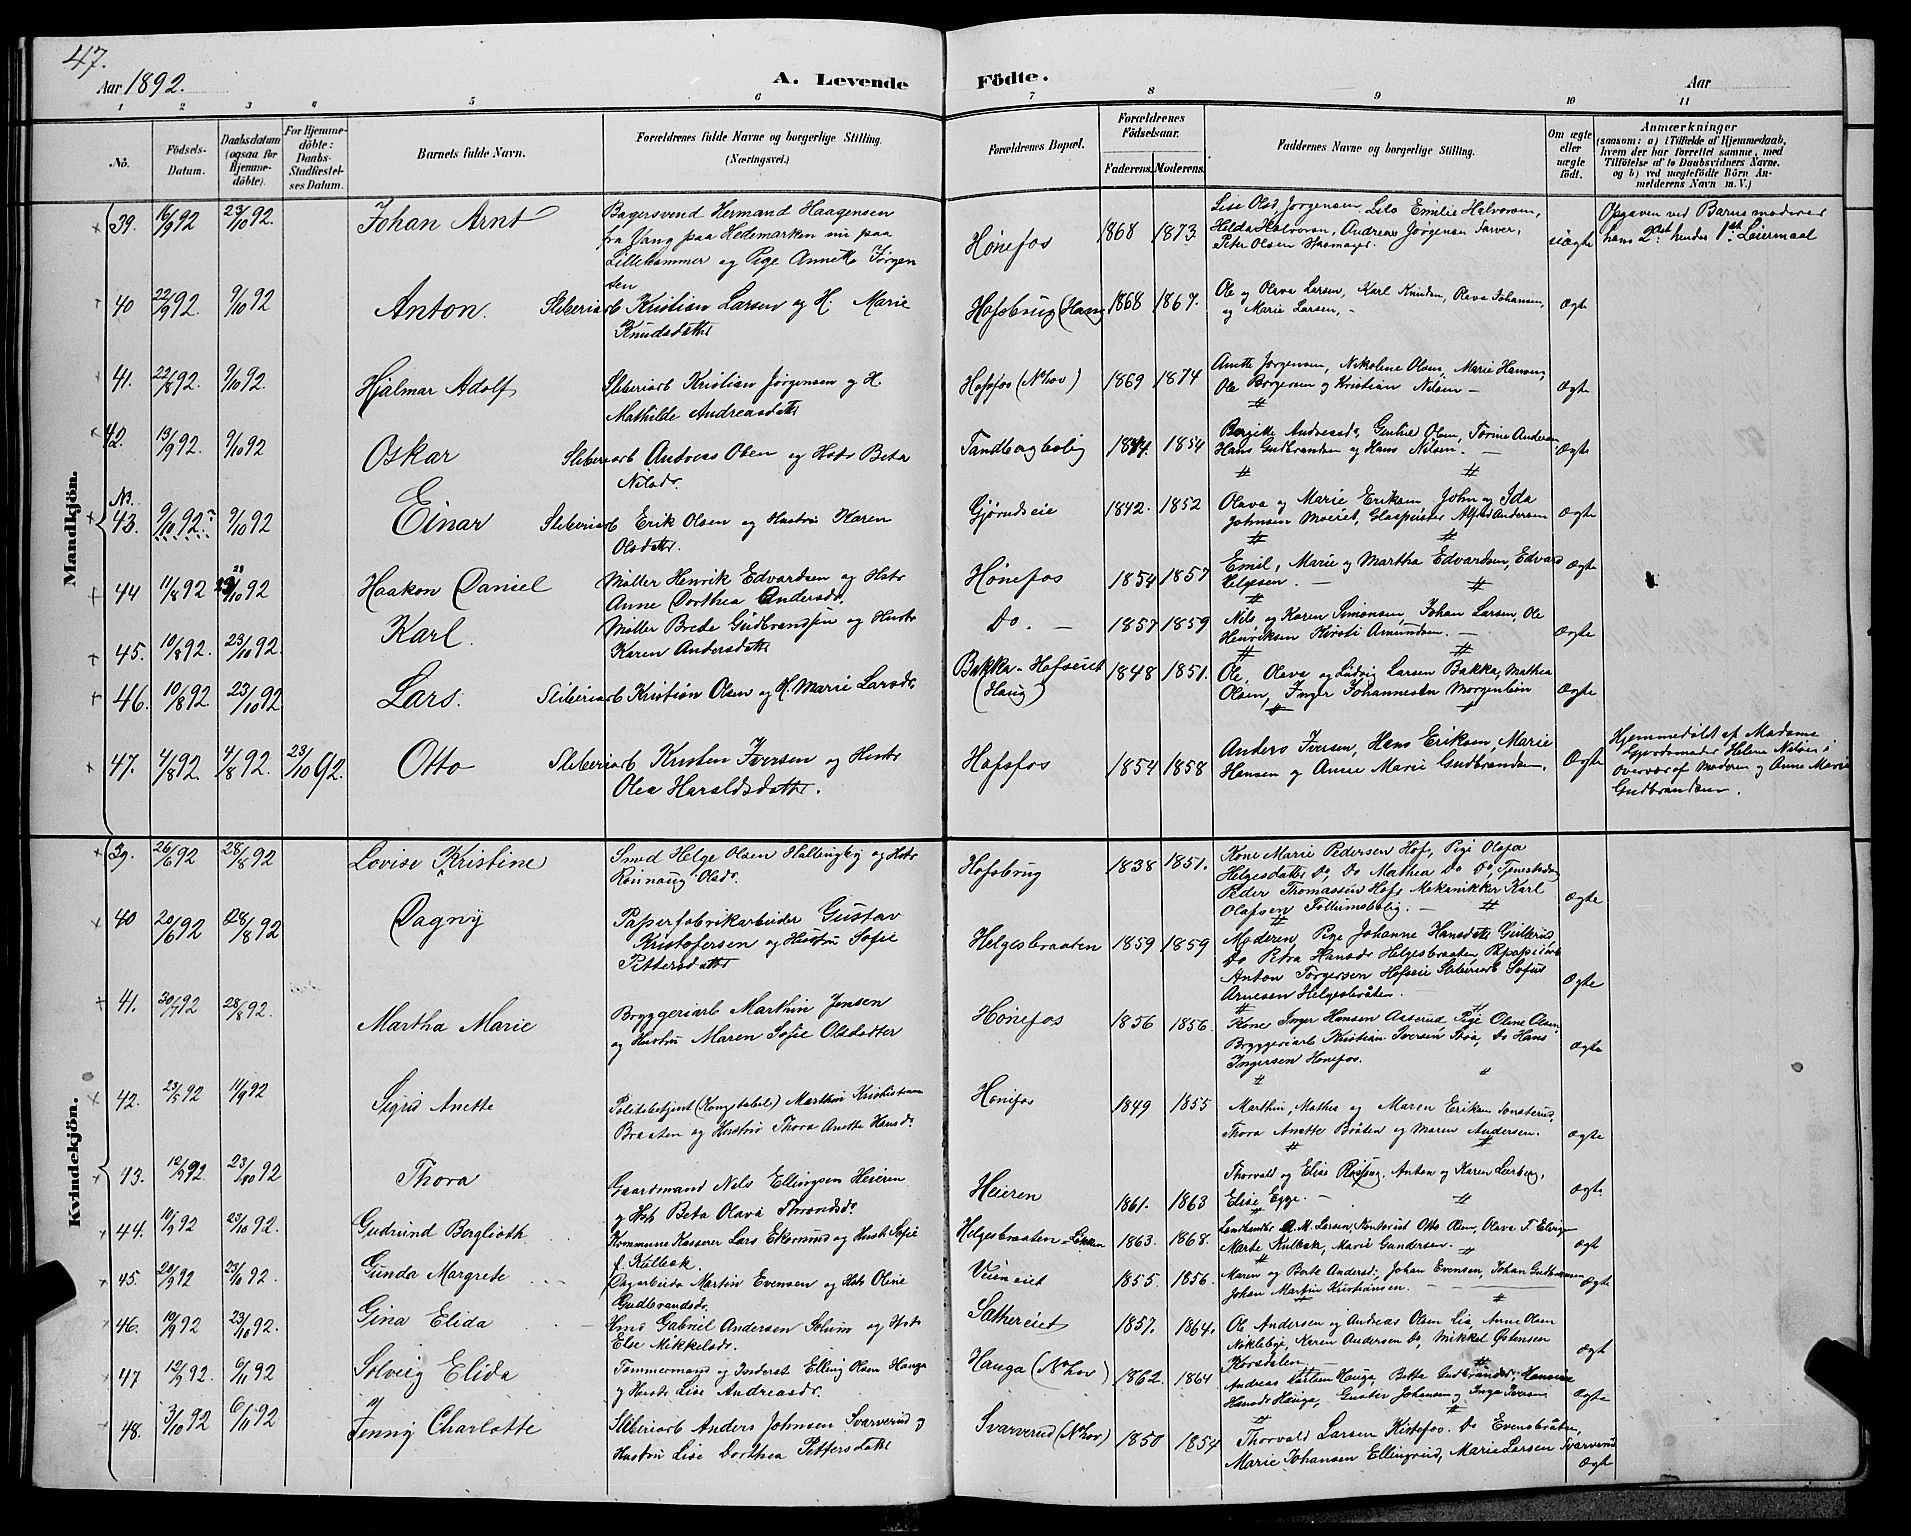 47.
Aar 1892.
A. Levende Födte.
Aar
1 2 3 4 5 6 7 8 9 10 11
No.
Födsels-Datum.
Daabsdatum (ogsaa for Hjemmedöbte).
For Hjemmedöbte: Daabs-Stadfæstelses Datum.
Barnets fulde Navn.
Forældrenes fulde Navne og borgerlige Stilling.
(Næringsvei.)
Forældrenes Bopæl.
Forældrenes Födselsaar.
Faderens. Moderens.
Faddernes Navne og borgerlige Stilling.
Om ægte eller uægte födt.
Anmærkninger
(saasom: a) i Tilfælde af Hjemmedaab, hvem der har forrettet samme, med Tilföielse af to Daabsvidners Navne, og b) ved uægtefödte Börn Anmelderens Navn m. V.)
Mandkjön.
39. 16/9 92 23/10 92. Johan Arnt
Bagersvend Hermand Haagensen
fra Vang paa Hedemarken nu paa
Lillehammer og Pige Annette Jørgen
sen
Hønefos 1868 1873
Lise Olsd Jørgensen, Emilie Halvorsen,
Helda Halvorsen, Andreas Jørgensen Farver,
Peter Olsen Skomager.
uægte
Opgaven ved Barnemoderen
hans 2det hendes 1ste Leiermaal
40 22/9 92. 9/10 92 Anton.
Sliberiarb Kristian Larsen og H. Marie
Knudsdatter
Hofsbrug (Haug) 1868 1867.
Ole og Olava Larsen, Karl Knudsen, Olava Johansen,
og Marie Larsen, -
Ægte
41. 22/8 92. 9/10 92. Hjalmar Adolf
Sliberiarb Kristian Jørgensen og H.
Mathilde Andreasdatter
Hofsfos (Nhov) 1869 1874
Anette Jørgensen, Nikoline Olsen, Marie Hansen,
Ole Børgersen og Kristian Nilsen -
Ægte
42. 13/9 92. 9/10 92 Oskar
Sliberiarb Andreas Olsen og Hstr Beta
Nilsdr.
Tandbergbolig 1854
Andreasdr, Gulle Olsen, Torine Andersen
Hans Gudbrandsen og Hans Nilsen. -
Ægte
NB.
43. 9/10 92 9/10 92 Einar
Sliberiarb Erik Olsen og Hustru Karen
Olsdatter.
Gjørudseie 1842. 1852
Olava og Marie Eriksen John og Ida
Johnsen Moeiet, Glaspuster Alfred Andersen
Ægte
44 11/8 92 23/10 92 Haakon Daniel
Møller Henrik Edvardsen og Hstr
Anne Dorthea Andersdr.
Hønefos 1854 1857
Emil, Marie og Martha Edvardsen, Edvard
Helgesen. -
Ægte
45. 10/8 92. 23/10 92. Karl.
Møller Brede Gudbrandsen og Hustr
Karen Andersdatter
Do. - 1857 1859
Nils og Karen Simonsen, Johan Larsen, Ole
Henriksen Kirsti Amundsen. -
Ægte
46. 10/8 92 23/10 92 Lars.
Sliberiarb Kristian Olsen og H. Marie Larsdr
Bakka - Hofseiet
(Haug) 1848 1851.
Ole, Olava og Ludvig Larsen Bakka, Mathea
Olsen, Inger Johannesen Morgenløn
Ægte
47. 4/8 92 4/8 92. 23/10 92. Otto
Sliberiarb Kristen Iversen og Hustr
Olea Haraldsdatter.
Hofsfos 1854 1858
Anders Iversen, Hans Eriksen, Marie
Hansen og Anne Marie Gudbrandsen.
Ægte
Hjemmedøbt af Madame
Gjordemoder Helene Nielsen i
overvær af Moderen og Anne Marie
Gudbrandsen.
Kvindekjön.
39. 26/6 92 28/8 92 Lovise Kristine
Smed Helge Olsen Hallingby og Hstr
Rønnaug Olsdr.
Hofsbrug 1838 1851.
Kone Marie Pedersen Hof, Pige Olava
Helgesdatter Do, Do Mathea Do Do, Tjenestedreng
Peder Thomassen Hofs Mekanikker Karl
Olafsen Follumsbolig. -
Ægte
40 20/6 92 28/8 92 Dagny
Papirfabrikarbeider Gustav
Kristofersen og Hustru Sofie
Pettersdatter
Helgesbraaten 1859 1859
Moderen, Pige Johanne Hansdatter Gullerud
Do Petra Hansdr Helgesbraaten Papapirarb
Anton Torgersen Hofseie Sliberiarb Sofus
Arnesen Helgesbråten. -
Ægte
41. 30/7 92 28/8 92. Martha Marie
Bryggeriarb Marthin Jensen
og Hustru Maren Sofie Olsdatter
Hønefos 1856 1856.
Kone Inger Hansen Aaserud Pige Oline Olsen,
Bryggeriarb Kristian Iversen Do Hans
Ingersen Hønefos.
Ægte
42. 23/5 92 11/9 92 Sigrid Anette
Politibetjent (Konstabel) Marthin Kristiansen
Braaten og Hustru Thora Anette Hansdr
Hønefos 1849 1855
Marthin, Mathea og Maren Eriksen Tonsterud,
Thora Anette Bråten og Maren Andersen.
Ægte
43. 12/9 92 23/10 92 Thora
Gaardmand Nils Ellingsen Heieren
og Hstr Beta Olava Throndsdr
Heieren 1861. 1863
Thorvald og Elise Røsseng, Anton og Karen Lerberg,
Elise Egge. -
Ægte
44. 10/9 92 23/10 92. Gudrund Bergliøth
Kommune Kasserer Lars Ekornrud og Hustr Sofie
f. Kulbæk.
Helgesbraaten - Løkken 1863. 1868.
Landhandler A. M. Larsen, Kontorist Otto Olsen, Olava F. Elvigen
Marte Kulbæk, Marie Gundersen.
Ægt
45. 20/9 92 23/10 92. Gunda Margrete
Dagarbeider Martin Evensen og Hstr Oline
Gudbrandsdr.
Veineiet 1855. 1856.
Maren og Berte Andersd, Johan Evensen, Johan Gudbransen
Johan Martin Kristiansen.
Ægte
46. 10/9 92 23/10 92. Gina Elida
Hmd Gabriel Andersen Solum og Hstr
Else Mikkelsdr.
Sathereiet 1857. 1864.
Ole Andersen og Andreas Olsen Lia, Anne Olsen
Nökleby, Karen Andersen Do, Mikkel Østensen
Korsdalen
Ægt
47 12/9 92. 6/11 92 Solveig Elida
Tømmermand og Inderst Elling Olsen Hauga
og Hustr Lise Andreasdr.
Hauga (Nhov) 1862. 1864
Andreas Karlsen Hauga, Bette Gudbrandsdr, Hansine
Hansdr Hauga, Gustav Johansen og Inga Iversen
Ægte
48. 3/10 92 6/11 92 Jenny Charlotte
Sliberiarb Anders Johnsen Svarverud og
Hustru Lise Dorthea Pettersdatter
Svarverud (Nhov) 1850 1854
Thorvald Larsen Kistefos. Do Evensbråten,
Marie Johansen Ellingsrud, Marie Larsen Svarverud
Ægte